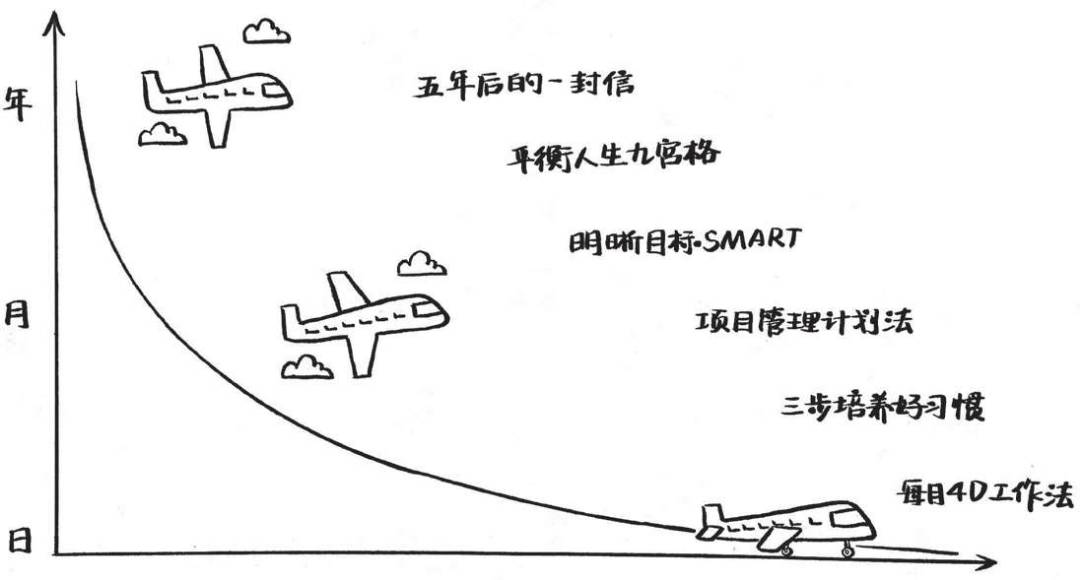 年
五年后的一封信
平衡人生九宫格
明晰目标·SMART
月
项目管理计划法
三步培养好习惯
每日4D工作法
日